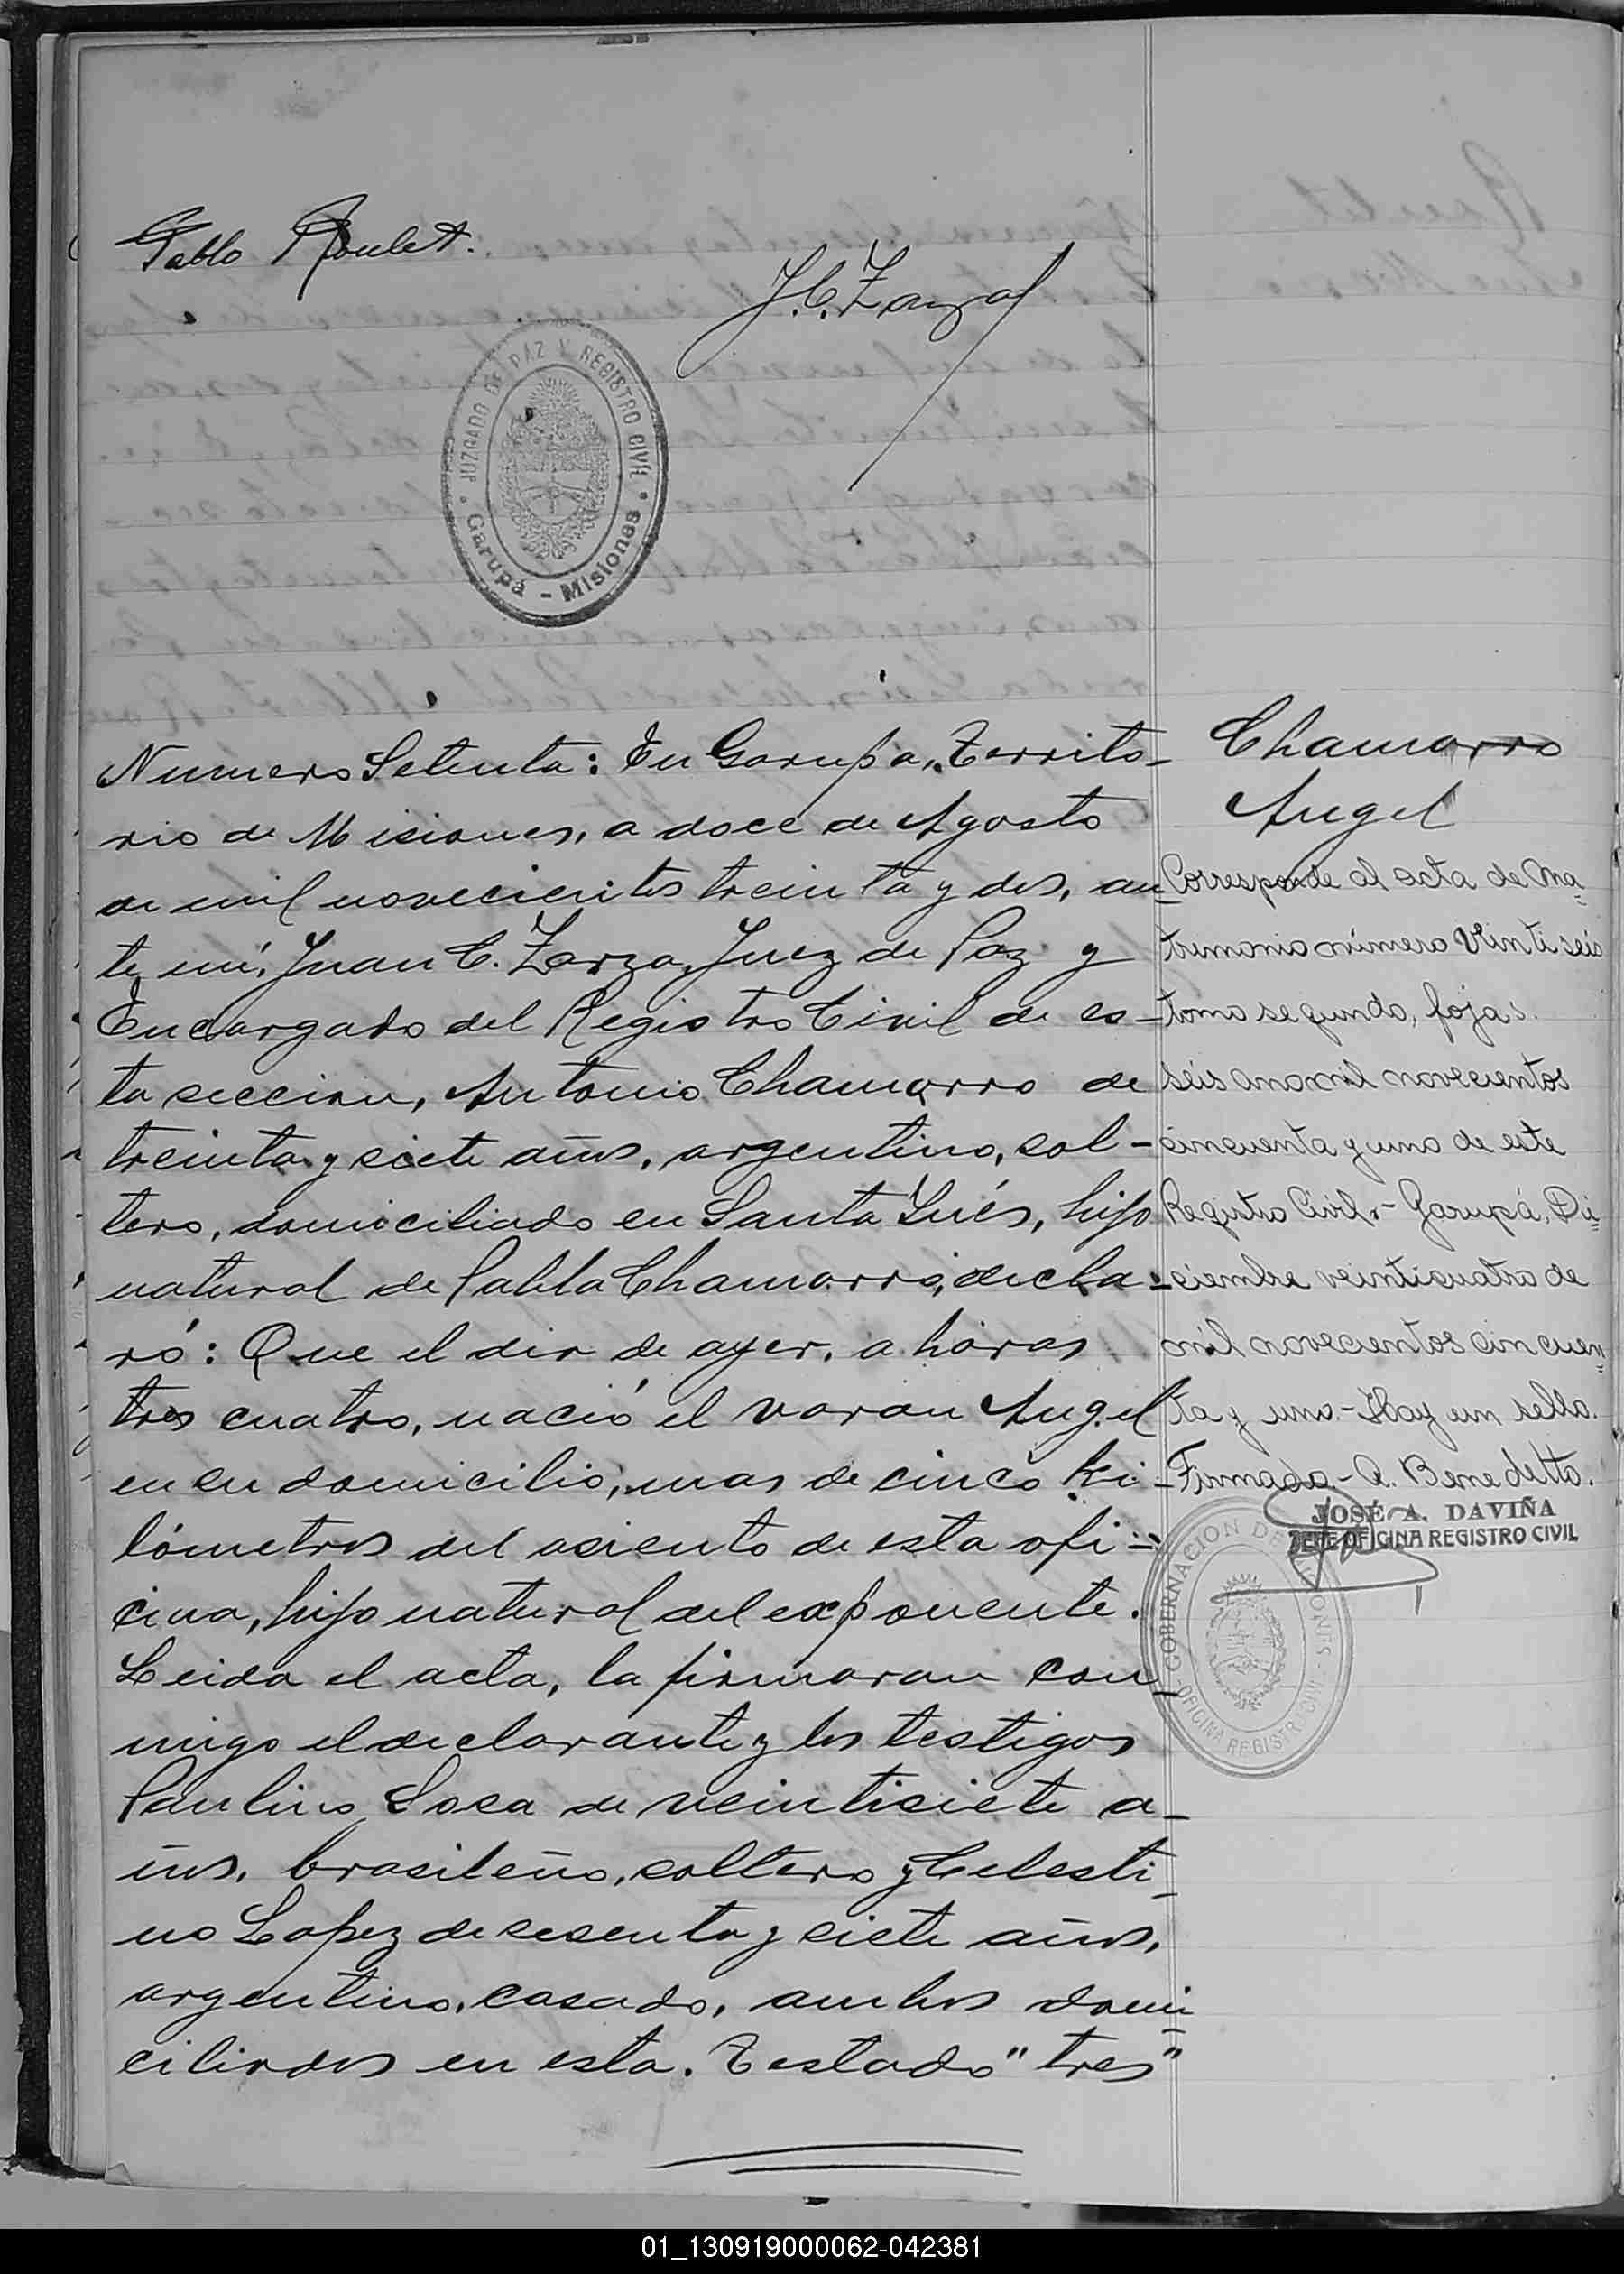 Pablo Roulet.
J.C. Zarza
JUZGADO DE PAZ Y REGISTRO CIVIL
Garupá - Misiones
Numero Setenta: En Garupa, Territo-
rio de Misiones, a doce de Agosto
de mil novecientos treinta y dos, an-
te mí, Juan C. Zarza, Juez de Paz y
Encargado del Registro Civil de es-
ta seccion, Antonio Chamorro de
treinta y siete años, argentino, sol-
tero, domiciliado en Santa Inés, hijo
natural de Pabla Chamorro, decla-
ró: Que el dia de ayer, a horas
tres cuatro, nació el varon Angel
en su domicilio, mas de cinco ki-
lómetros del asiento de esta ofi-
cina, hijo natural del exponente.
Leida el acta, la firmaron con-
migo el declarante y los testigos
Paulino Sosa de veintisiete a-
ños, brasileño, soltero y Celesti-
no Lopez de sesenta y siete años,
argentino, casado, ambos domi-
ciliados en esta. Testado "tres"
Chamorro
Angel
Corresponde al acta de Ma=
trimonio número Veintiseis
tomo segundo, fojas
seis año mil novecientos
cincuenta y uno de este
Registro Civil.- Garupá, Di=
ciembre veinticuatro de
mil novecientos cincuen=
ta y uno.- Hay un sello.
Firmado.- A. Benedetto.
JOSÉ A. DAVIÑA
JEFE OFICINA REGISTRO CIVIL
GOBERNACION DE MISIONES
OFICINA REGISTRO CIVIL
01_130919000062-042381